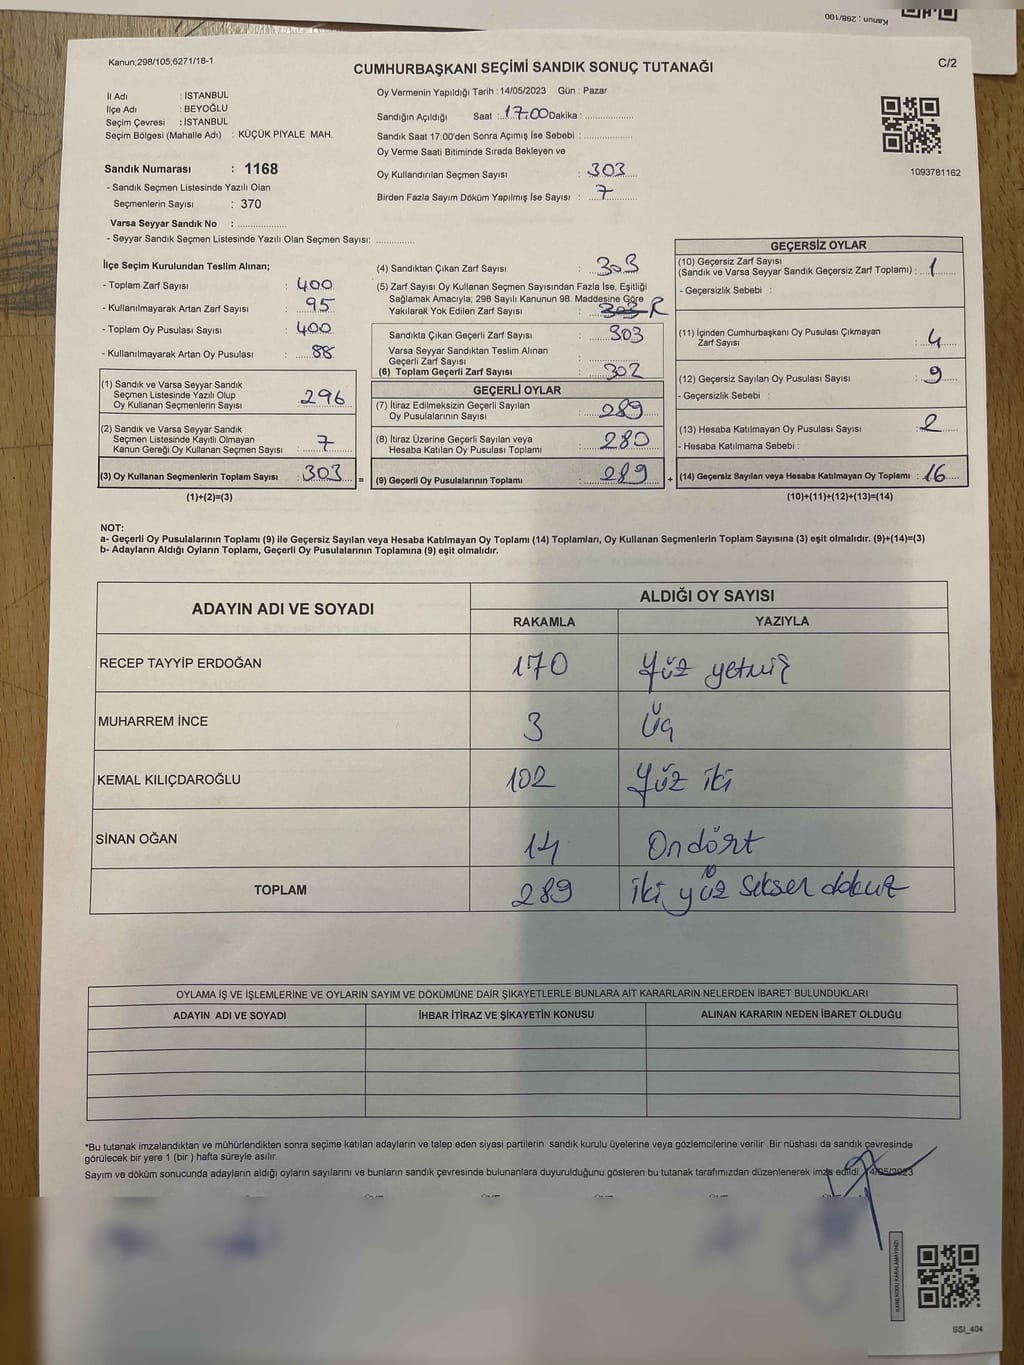 Kanun : 298/100
Kanun;298/105;6271/18-1
CUMHURBAŞKANI SEÇİMİ SANDIK SONUÇ TUTANAĞI
C/2
İl Adı : İSTANBUL
İlçe Adı : BEYOĞLU
Seçim Çevresi : İSTANBUL
Seçim Bölgesi (Mahalle Adı) : KÜÇÜK PİYALE MAH.
Sandık Numarası : 1168
- Sandık Seçmen Listesinde Yazılı Olan
Seçmenlerin Sayısı : 370
Varsa Seyyar Sandık No : ..............
- Seyyar Sandık Seçmen Listesinde Yazılı Olan Seçmen Sayısı: ............
Oy Vermenin Yapıldığı Tarih :14/05/2023 Gün : Pazar
Sandığın Açıldığı Saat :..17:00 Dakika : ..............
Sandık Saat 17:00'den Sonra Açımış İse Sebebi : ..............
Oy Verme Saati Bitiminde Sırada Bekleyen ve
Oy Kullandırılan Seçmen Sayısı : 303
Birden Fazla Sayım Döküm Yapılmış İse Sayısı : 7
1093781162
İlçe Seçim Kurulundan Teslim Alınan;
- Toplam Zarf Sayısı : 400
- Kullanılmayarak Artan Zarf Sayısı : 95
- Toplam Oy Pusulası Sayısı : 400
- Kullanılmayarak Artan Oy Pusulası : 88
(1) Sandık ve Varsa Seyyar Sandık
Seçmen Listesinde Yazılı Olup
Oy Kullanan Seçmenlerin Sayısı : 296
(2) Sandık ve Varsa Seyyar Sandık
Seçmen Listesinde Kayıtlı Olmayan
Kanun Gereği Oy Kullanan Seçmen Sayısı : 7
(3) Oy Kullanan Seçmenlerin Toplam Sayısı : 303 =
(1)+(2)=(3)
(4) Sandıktan Çıkan Zarf Sayısı : 303
(5) Zarf Sayısı Oy Kullanan Seçmen Sayısından Fazla İse, Eşitliği
Sağlamak Amacıyla; 298 Sayılı Kanunun 98. Maddesine Göre
Yakılarak Yok Edilen Zarf Sayısı : 303
Sandıkta Çıkan Geçerli Zarf Sayısı : 303
Varsa Seyyar Sandıktan Teslim Alınan
Geçerli Zarf Sayısı : ..............
(6) Toplam Geçerli Zarf Sayısı : 302
GEÇERLİ OYLAR
(7) İtiraz Edilmeksizin Geçerli Sayılan
Oy Pusulalarının Sayısı : 289
(8) İtiraz Üzerine Geçerli Sayılan veya
Hesaba Katılan Oy Pusulası Toplamı : 280
(9) Geçerli Oy Pusulalarının Toplamı : 289 +
GEÇERSİZ OYLAR
(10) Geçersiz Zarf Sayısı
(Sandık ve Varsa Seyyar Sandık Geçersiz Zarf Toplamı) : 1
- Geçersizlik Sebebi :
(11) İçinden Cumhurbaşkanı Oy Pusulası Çıkmayan
Zarf Sayısı : 4
(12) Geçersiz Sayılan Oy Pusulası Sayısı : 9
- Geçersizlik Sebebi :
(13) Hesaba Katılmayan Oy Pusulası Sayısı : 2
- Hesaba Katılmama Sebebi :
(14) Geçersiz Sayılan veya Hesaba Katılmayan Oy Toplamı : 16
(10)+(11)+(12)+(13)=(14)
NOT:
a- Geçerli Oy Pusulalarının Toplamı (9) ile Geçersiz Sayılan veya Hesaba Katılmayan Oy Toplamı (14) Toplamları, Oy Kullanan Seçmenlerin Toplam Sayısına (3) eşit olmalıdır. (9)+(14)=(3)
b- Adayların Aldığı Oyların Toplamı, Geçerli Oy Pusulalarının Toplamına (9) eşit olmalıdır.
ADAYIN ADI VE SOYADI
ALDIĞI OY SAYISI
RAKAMLA YAZIYLA
RECEP TAYYİP ERDOĞAN 170 Yüz yetmiş
MUHARREM İNCE 3 Üç
KEMAL KILIÇDAROĞLU 102 Yüz iki
SİNAN OĞAN 14 Ondört
TOPLAM 289 İki yüz seksen dokuz
OYLAMA İŞ VE İŞLEMLERİNE VE OYLARIN SAYIM VE DÖKÜMÜNE DAİR ŞİKAYETLERLE BUNLARA AİT KARARLARIN NELERDEN İBARET BULUNDUKLARI
ADAYIN ADI VE SOYADI İHBAR İTİRAZ VE ŞİKAYETİN KONUSU ALINAN KARARIN NEDEN İBARET OLDUĞU
*Bu tutanak imzalandıktan ve mühürlendikten sonra seçime katılan adayların ve talep eden siyasi partilerin sandık kurulu üyelerine veya gözlemcilerine verilir .Bir nüshası da sandık çevresinde
görülecek bir yere 1 (bir ) hafta süreyle asılır.
Sayım ve döküm sonucunda adayların aldığı oyların sayılarını ve bunların sandık çevresinde bulunanlara duyurulduğunu gösteren bu tutanak tarafımızdan düzenlenerek imza edildi. 14/05/2023
KAREKODU KARALAMAYINIZ!
SSI_404